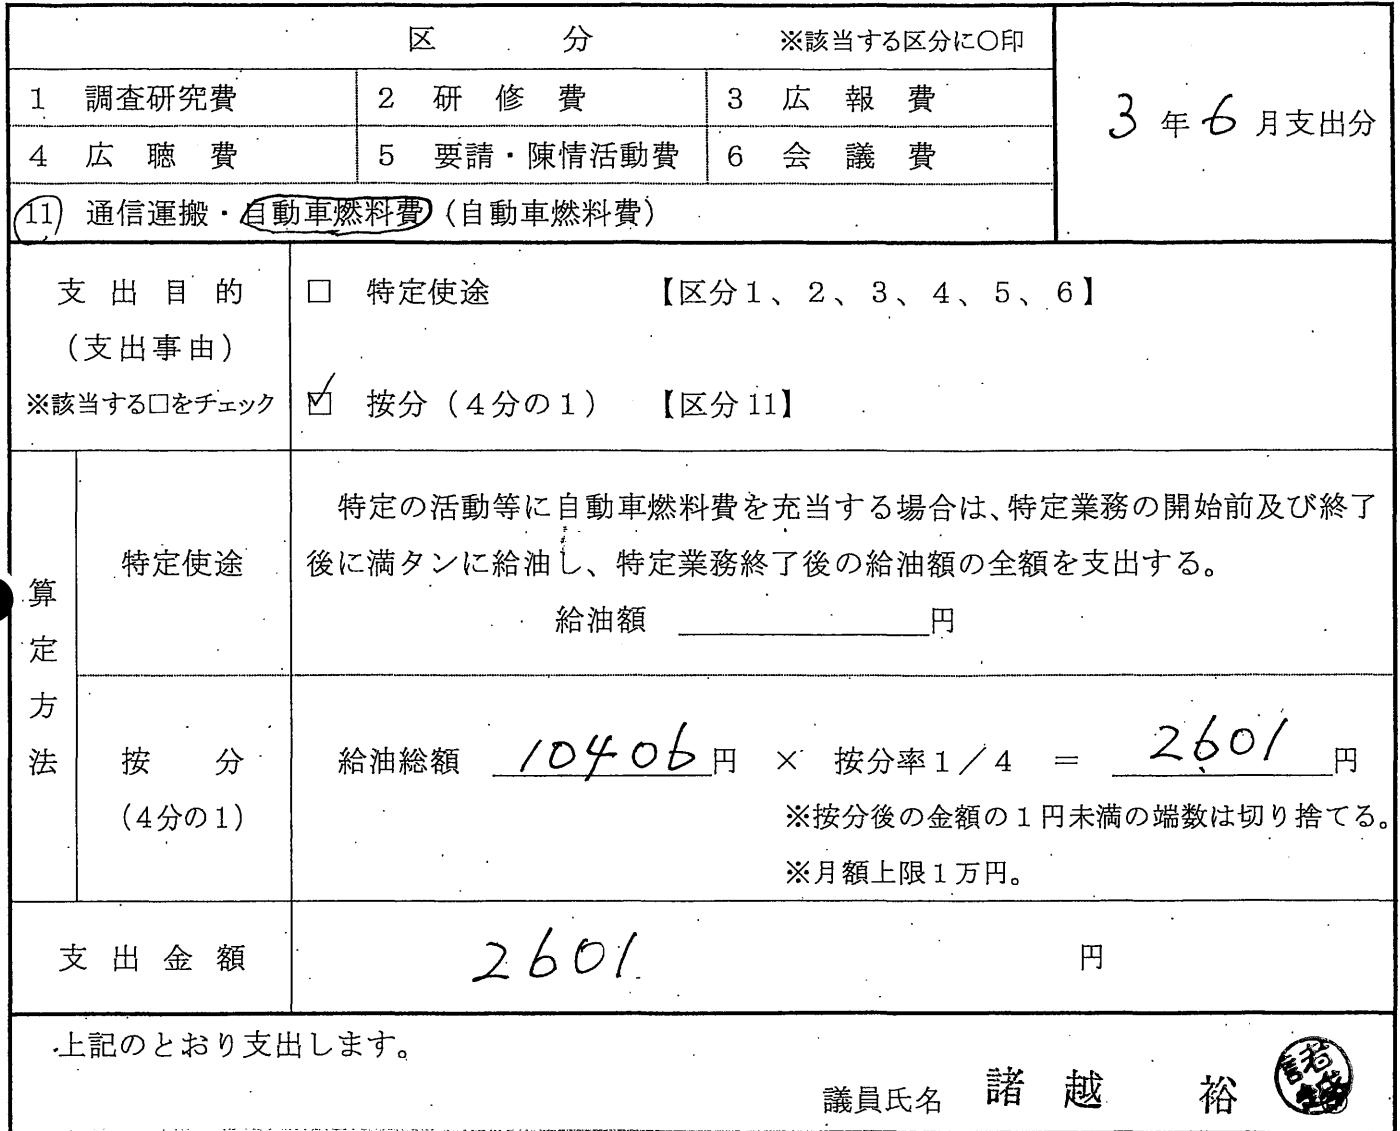 区 分 ※該当する区分に〇印
3年6月支出分
1 調査研究費 2 研修費 3 広報費
4 広聴費 5 要請・陳情活動費 6 会議費
11 通信運搬・自動車燃料費(自動車燃料費)
支出目的
(支出事由)
※該当する□をチェック
□ 特定使途 【区分1、2、3、4、5、6】
☑ 按分(4分の1) 【区分11】
算定方法
特定使途
特定の活動等に自動車燃料費を充当する場合は、特定業務の開始前及び終了
後に満タンに給油し、特定業務終了後の給油額の全額を支出する。
給油額 円
按分
(4分の1)
給油総額 10406円 × 按分率1/4 = 2601円
※按分後の金額の1円未満の端数は切り捨てる。
※月額上限1万円。
支出金額 2601 円
上記のとおり支出します。
議員氏名 諸越 裕
諸越